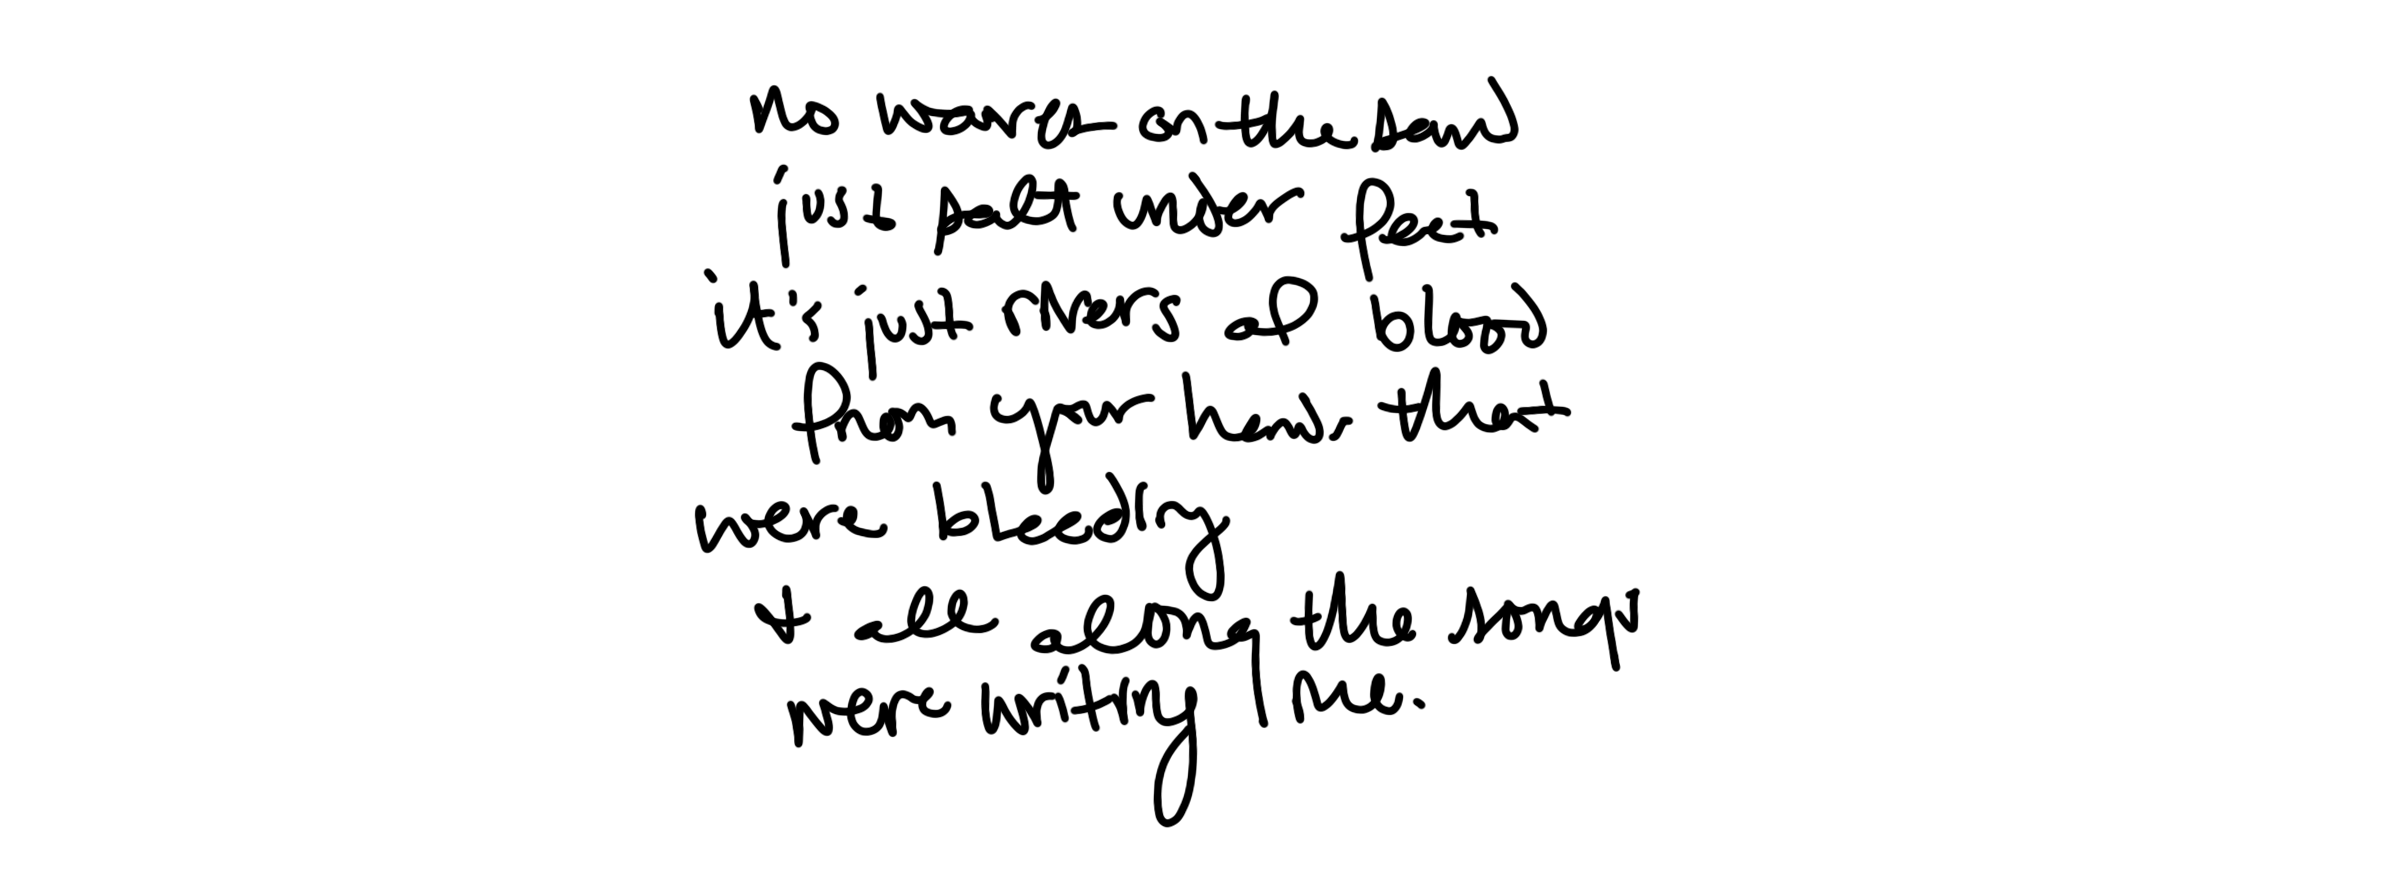 no waves on the sand
just salt under feet
it's just rivers of blood
from your hands that
were bleeding
+ all along the songs
were writing me.